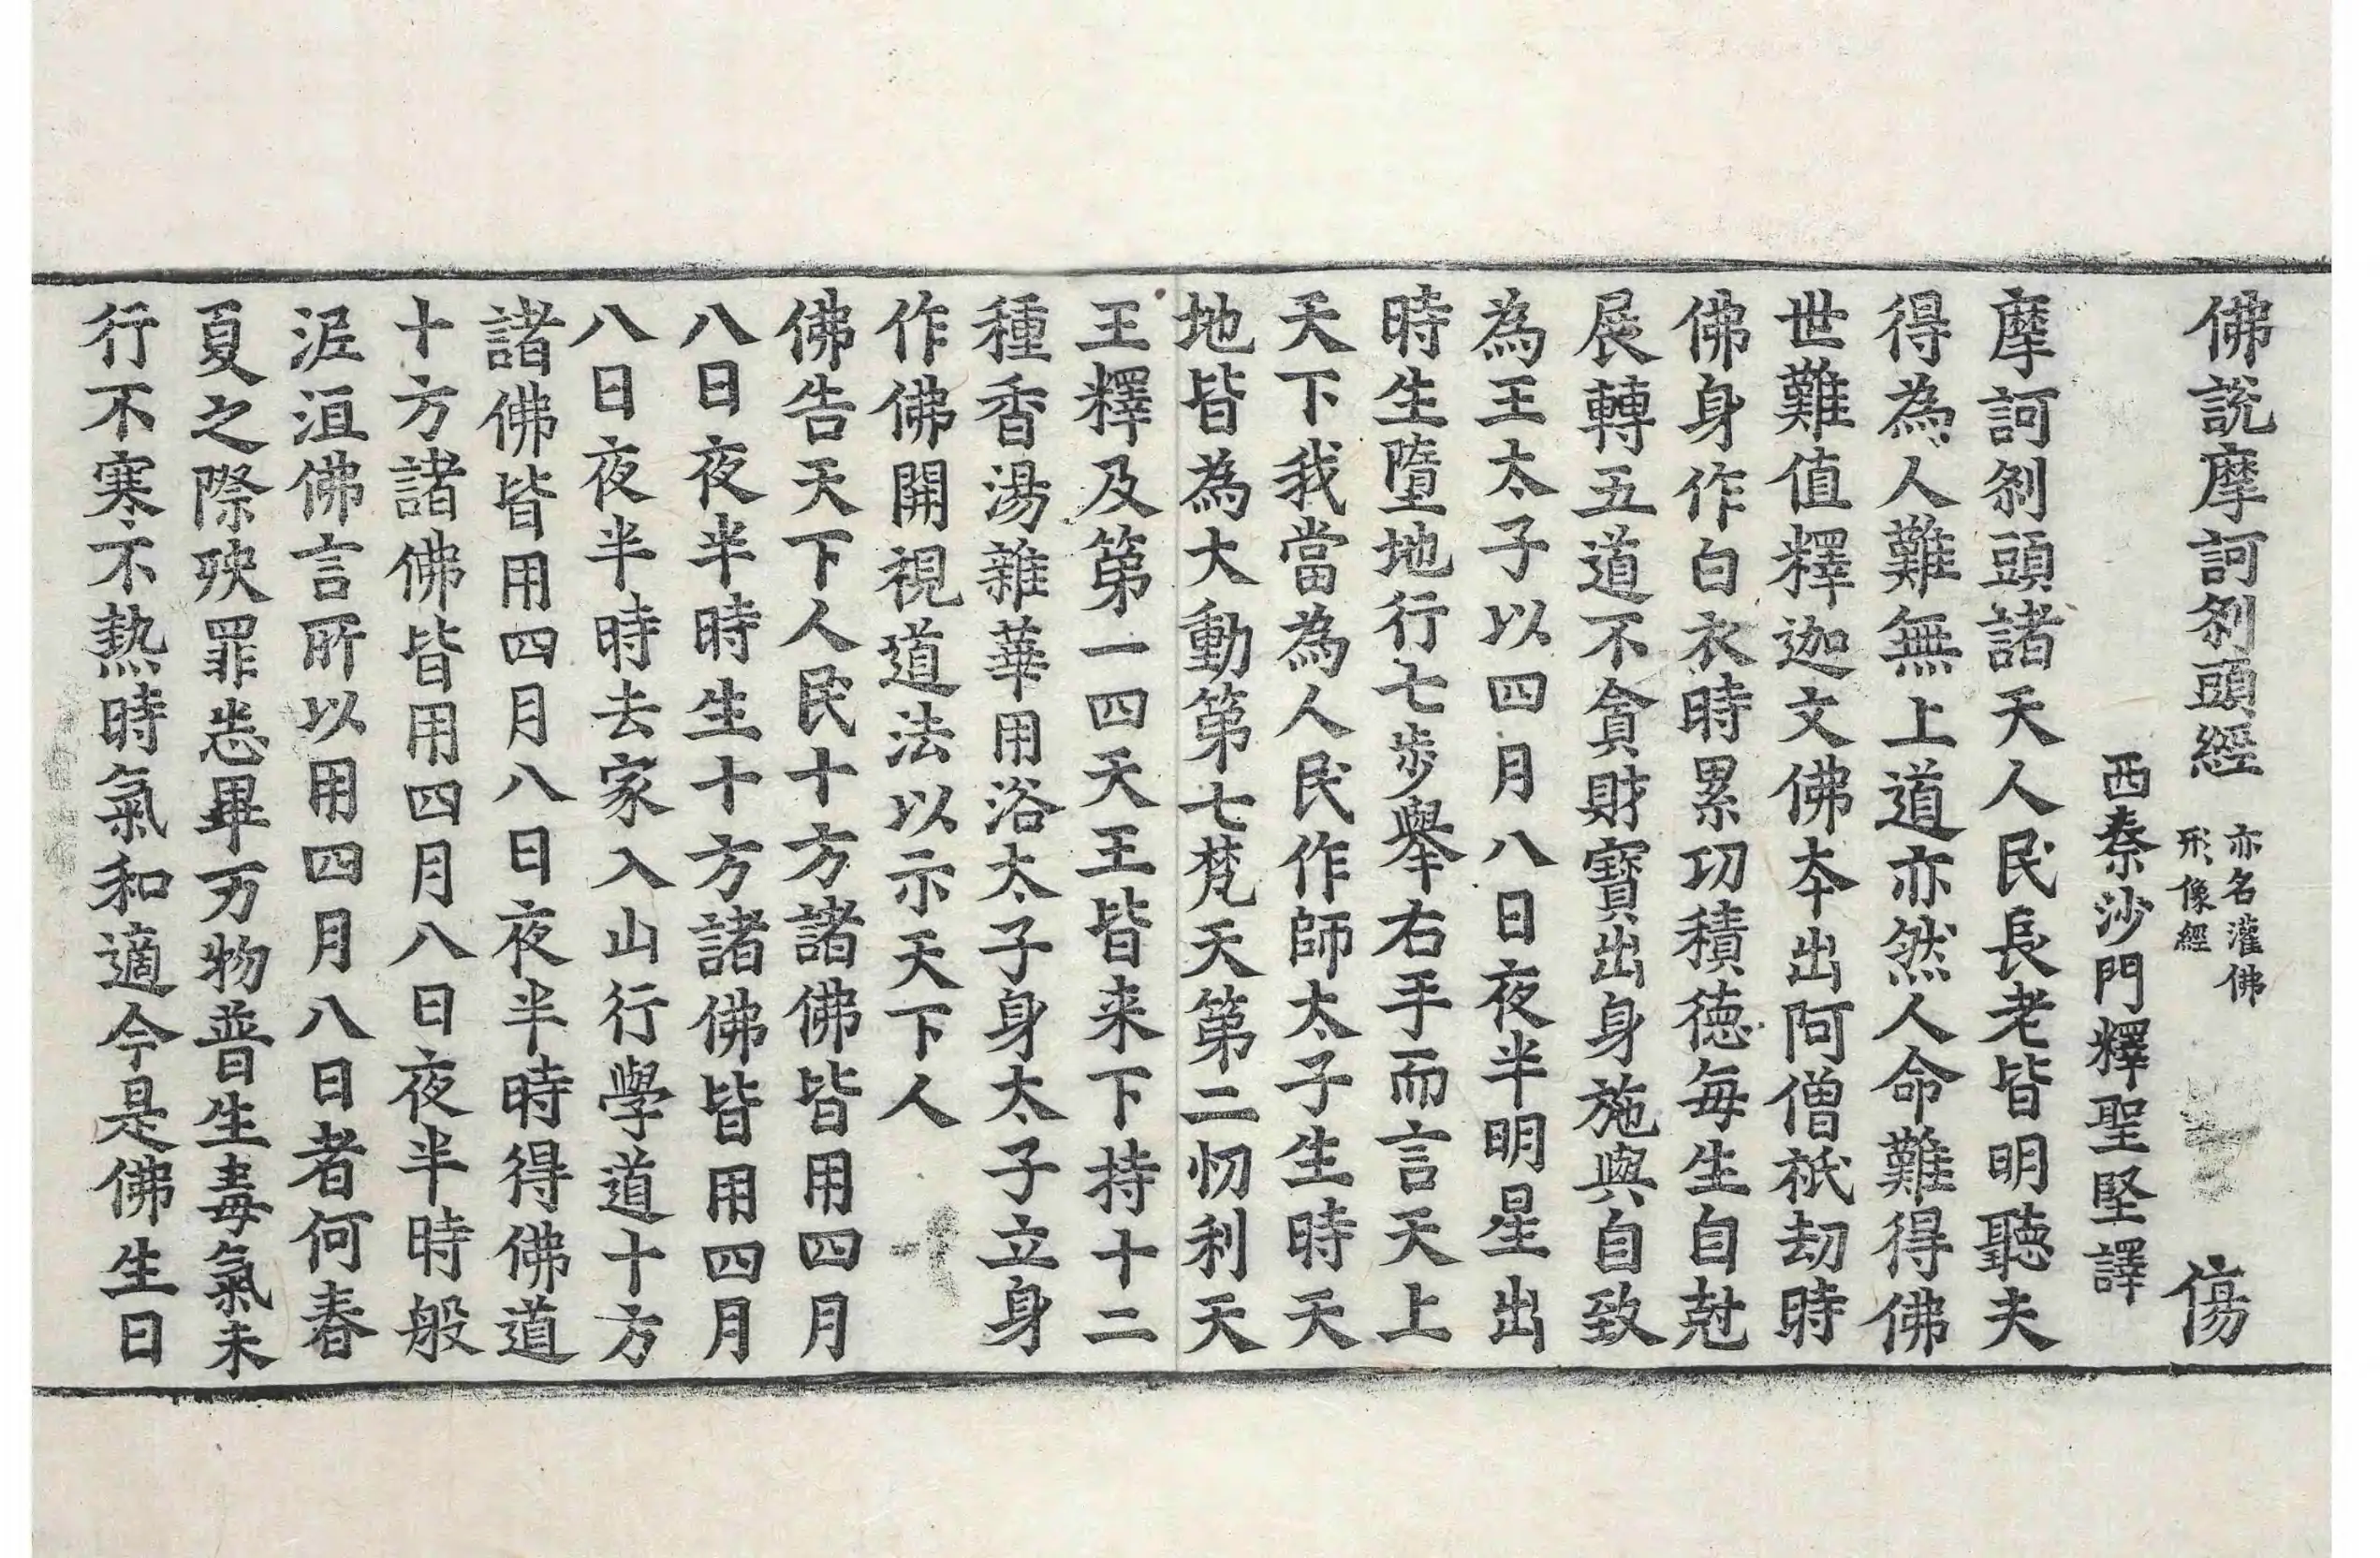 佛說摩訶剎頭經 亦名灌佛形像經 傷
西秦沙門釋聖堅譯
摩訶剎頭諸天人民長老皆明聽夫
得為人難無上道亦然人命難得佛
世難值釋迦文佛本出阿僧祇劫時
佛身作白衣時累功積德每生自尅
展轉五道不貪財寶出身施與自致
為王太子以四月八日夜半明星出
時生墮地行七步舉右手而言天上
天下我當為人民作師太子生時天
地皆為大動第七梵天第二忉利天
王釋及第一四天王皆来下持十二
種香湯雜華用浴太子身太子立身
作佛開視道法以示天下人
佛告天下人民十方諸佛皆用四月
八日夜半時生十方諸佛皆用四月
八日夜半時去家入山行學道十方
諸佛皆用四月八日夜半時得佛道
十方諸佛皆用四月八日夜半時般
泥洹佛言所以用四月八日者何春
夏之際殃罪悉畢万物普生毒氣未
行不寒不熱時氣和適今是佛生日